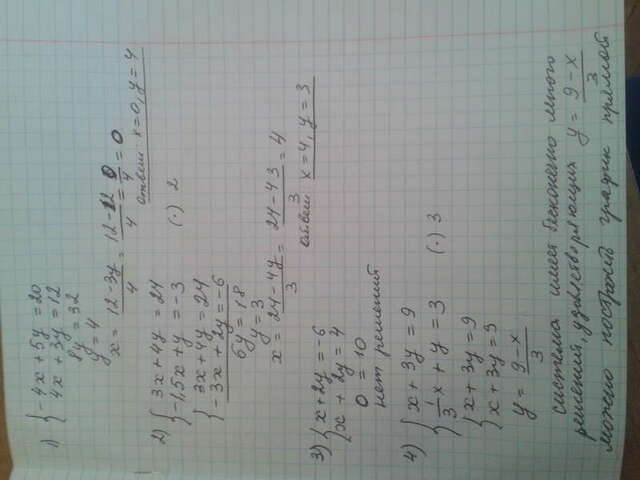 1) { -4x + 5y = 20
4x + 3y = 12
8y = 32
y = 4
x = (12-3y)/4 = (12-12)/4 = 0/4 = 0
ответ: x = 0, y = 4
2) { 3x + 4y = 24
-1,5x + y = -3 (·) 2
{ 3x + 4y = 24
-3x + 2y = -6
6y = 18
y = 3
x = (24-4y)/3 = (24-43)/3 = 4
ответ: x = 4, y = 3
3) { x + 2y = -6
x + 2y = 4
0 = 10
нет решений
4) { x + 3y = 9
1/3 x + y = 3 (·) 3
{ x + 3y = 9
x + 3y = 9
y = (9-x)/3
система имеет бесконечно много
решений, удовлетворяющих y = (9-x)/3
можно построить график прямой